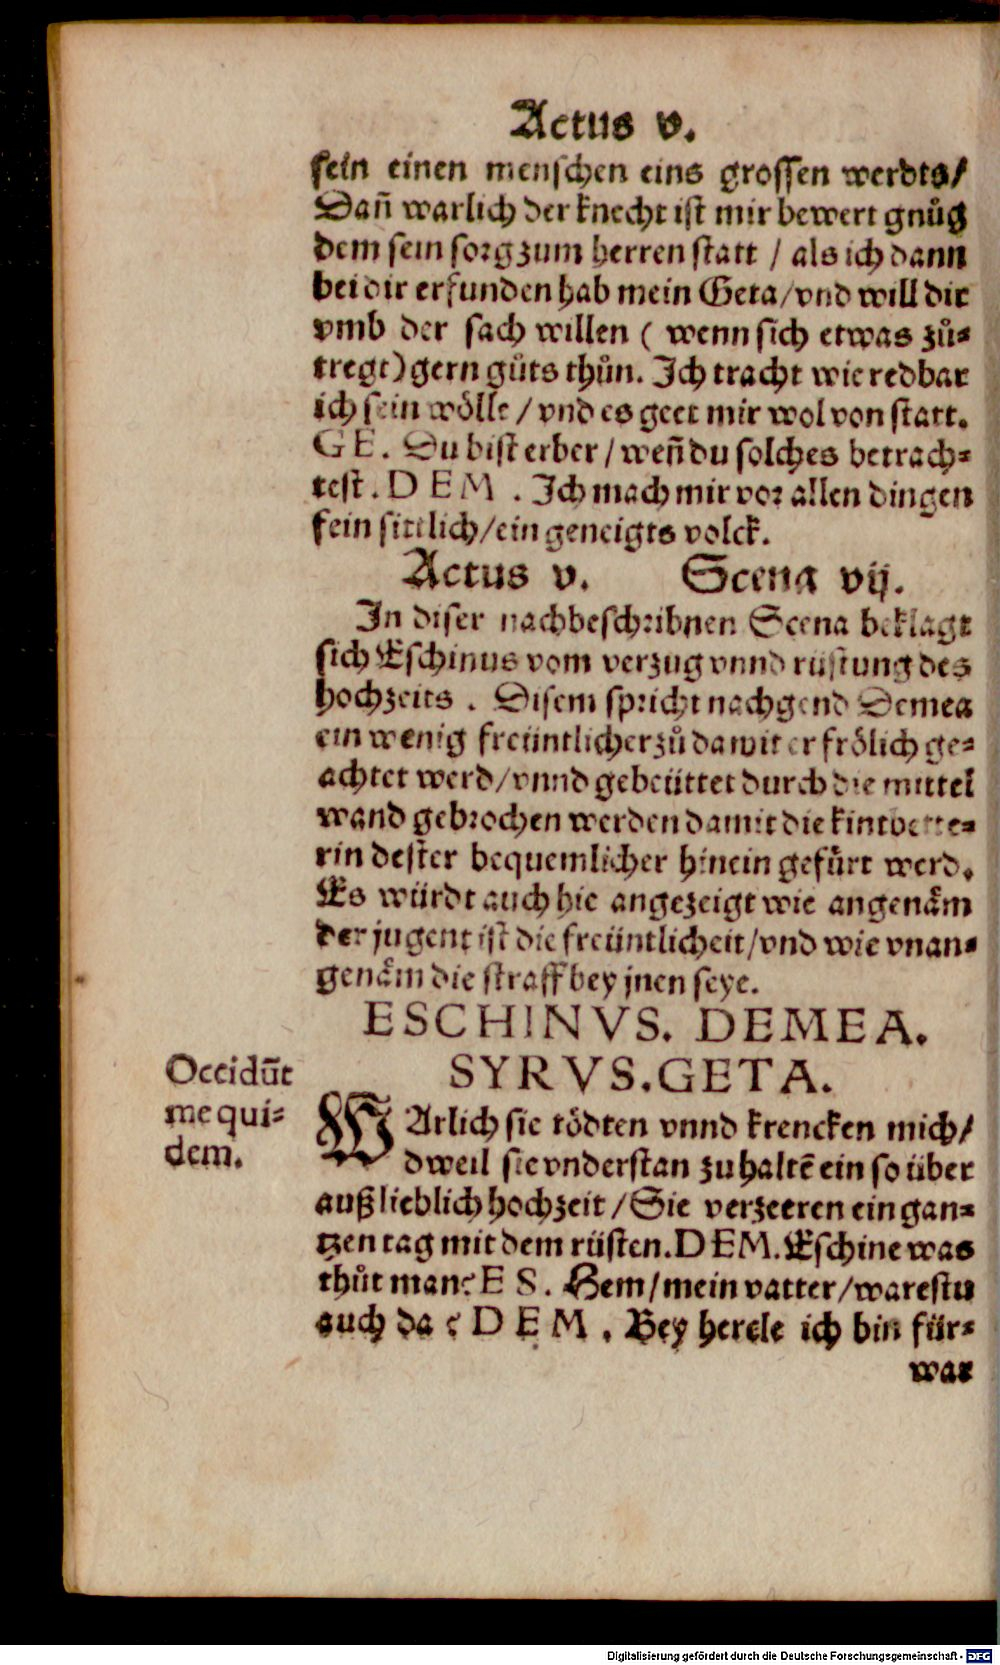 Actus v.
sein einen menschen eins grossen werdts/
Dañ warlich der knecht ist mir bewert gnůg
dem sein sorg zum herren statt / als ich dann
bei dir erfunden hab mein Geta/vnd will dir
vmb der sach willen ( wenn sich etwas zů-
tregt) gern gůts thůn. Ich tracht wie redbar
ich sein wölle / vnd es geet mir wol von statt.
GE. Du bist erber / weñ du solches betrach-
test. DEM. Ich mach mir vor allen dingen
fein sittlich/ein geneigts volck.
Actus v. Scena vij.
In diser nachbeschribnen Scena beklagt
sich Eschinus vom verzug vnnd rüstung des
hochzeits. Disem spricht nachgend Demea
ein wenig freüntlicher zů damit er frölich ge-
achtet werd/vnnd gebeüttet durch die mittel
wand gebrochen werden damit die kintbette-
rin dester bequemlicher hinein gefürt werd.
Es würdt auch hie angezeigt wie angenäm
der jugent ist die freüntlicheit/vnd wie vnan-
genäm die straff bey jnen seye.
ESCHINVS. DEMEA.
SYRVS. GETA.
Occidūt
me qui-
dem.
WArlich sie tödten vnnd krencken mich/
dweil sie vnderstan zu haltē ein so über
außlieblich hochzeit / Sie verzeeren ein gan-
tzen tag mit dem rüsten. DEM. Eschine was
thůt man? ES. Hem/mein vatter/warestu
auch da? DEM. Bey hercle ich bin für-
war
Digitalisierung gefördert durch die Deutsche Forschungsgemeinschaft - DFG